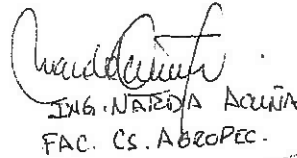 ING. NAREDA ACUÑA
FAC. CS. AGROPEC.